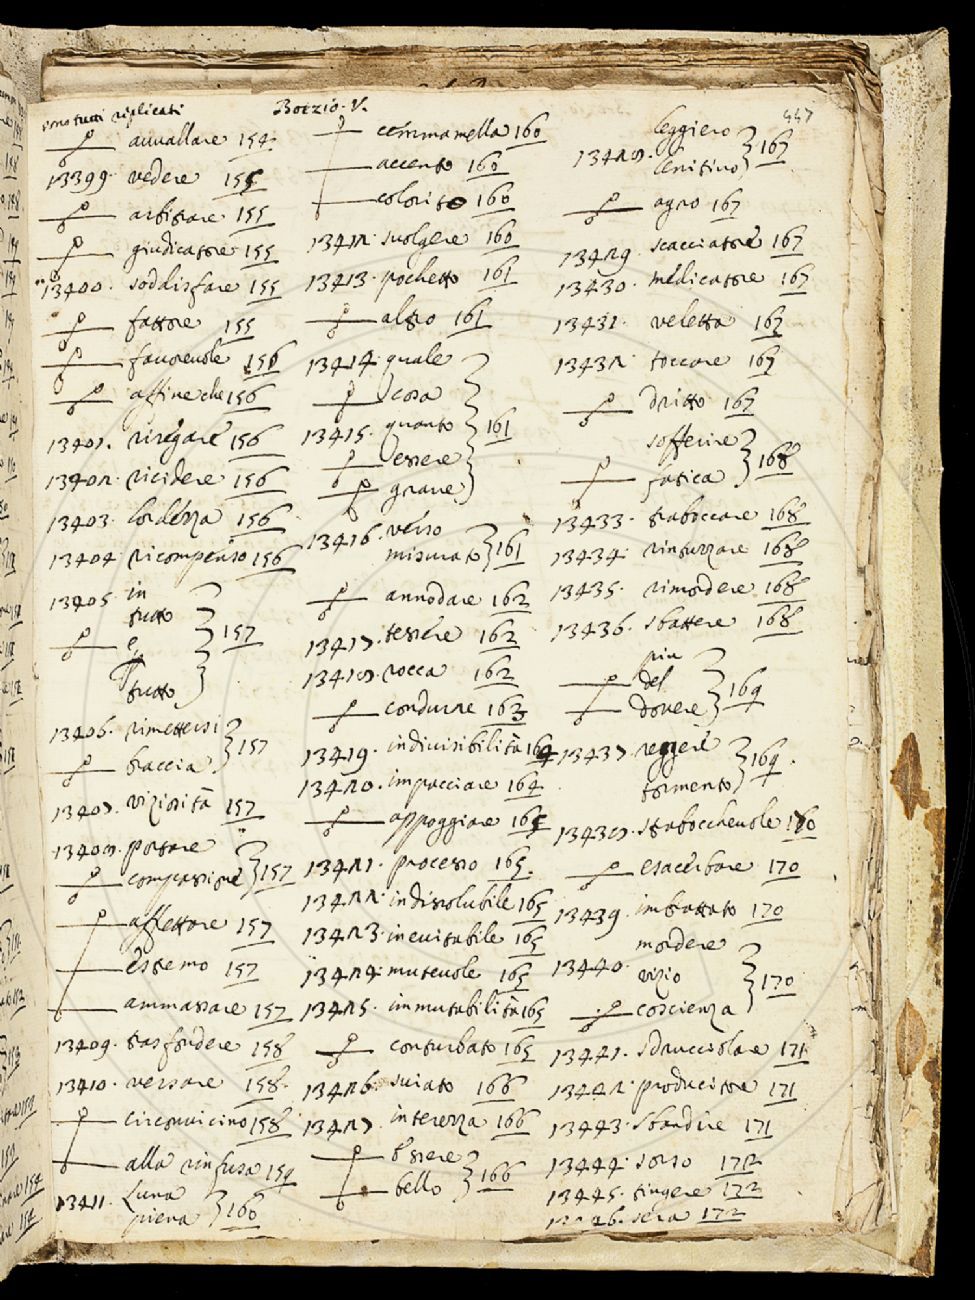 sono tutti riplicati
Boezio. V.
447
avvallare 154
13399. vedere 155
arbitrare 155
giudicatore 155
13400. soddisfare 155
fattore 155
favorevole 156
affine che 156
13401. rivegare 156
13402. ricidere 156
13403. lordezza 156
13404. ricompenso 156
13405. in
tutto
e
tutto
157
13406. rimettersi
braccia
157
13407. viziosità 157
13408. portare
compassione
157
affettare 157
estremo 157
ammassare 157
13409. trasfondere 158
13410. versare 158
circonvicino 158
alla rinfusa 159
13411. Luna
piena
160
cemmamella 160
accento 160
colorito 160
13412. svolgere 160
13413. pochetto 161
altro 161
13414. quale
cosa
13415. quanto
essere
grave
161
13416. verso
misurato
161
annodare 162
13417. tessere 162
13418. rocca 162
condurre 163
13419. indivisibilità 164
13420. impacciare 164
appoggiare 165
13421. processo 165
13422. indissolubile 165
13423. inevitabile 165
13424. mutevole 165
13425. immutabilità 165
conturbato 165
13426. sviato 166
13427. interezza 166
essere
bello
166
leggiero
13428.
lenitivo
167
agro 167
13429. scacciatore 167
13430. medicatore 167
13431. veletta 167
13432. toccare 167
dritto 167
sofferire
fatica
168
13433. traboccare 168
13434. rinfuzzare 168
13435. rimordere 168
13436. sbattere 168
piu
del
dovere
169
13437. reggere
tormento
169
13438. strabocchevole 170
esacerbare 170
13439. imbrattato 170
mordere
13440.
vizio
coscienza
170
13441. sdrucciolare 171
13442. producitore 171
13443. sbandire 171
13444. sorso 172
13445. tingere 172
sera 172